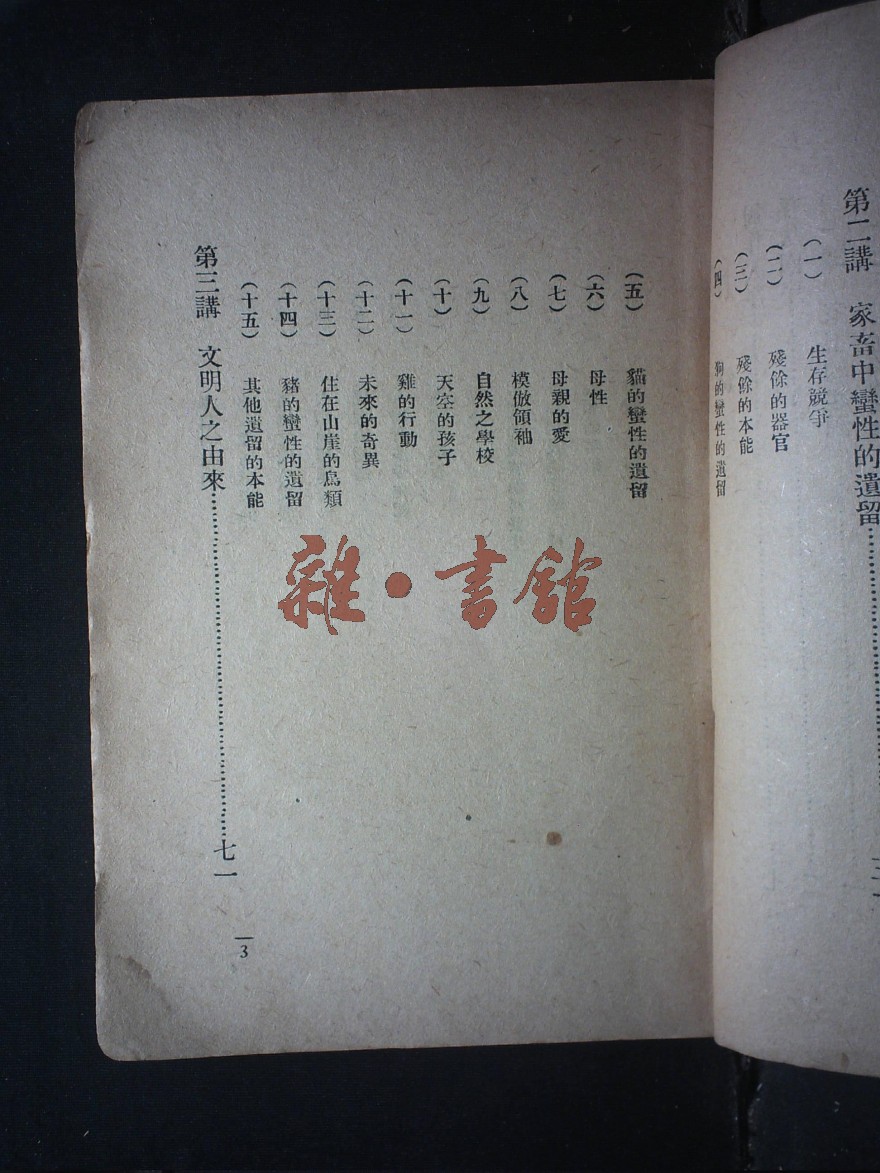 第二講　家畜中蠻性的遺留……
(一)　生存競爭
(二)　殘餘的器官
(三)　殘餘的本能
(四)　狗的蠻性的遺留
(五)　貓的蠻性的遺留
(六)　母性
(七)　母親的愛
(八)　模倣領袖
(九)　自然之學校
(十)　天空的孩子
(十一)　雞的行動
(十二)　未來的奇異
(十三)　住在山崖的鳥類
(十四)　豬的蠻性的遺留
(十五)　其他遺留的本能
第三講　文明人之由來……七一
3
雜·書館